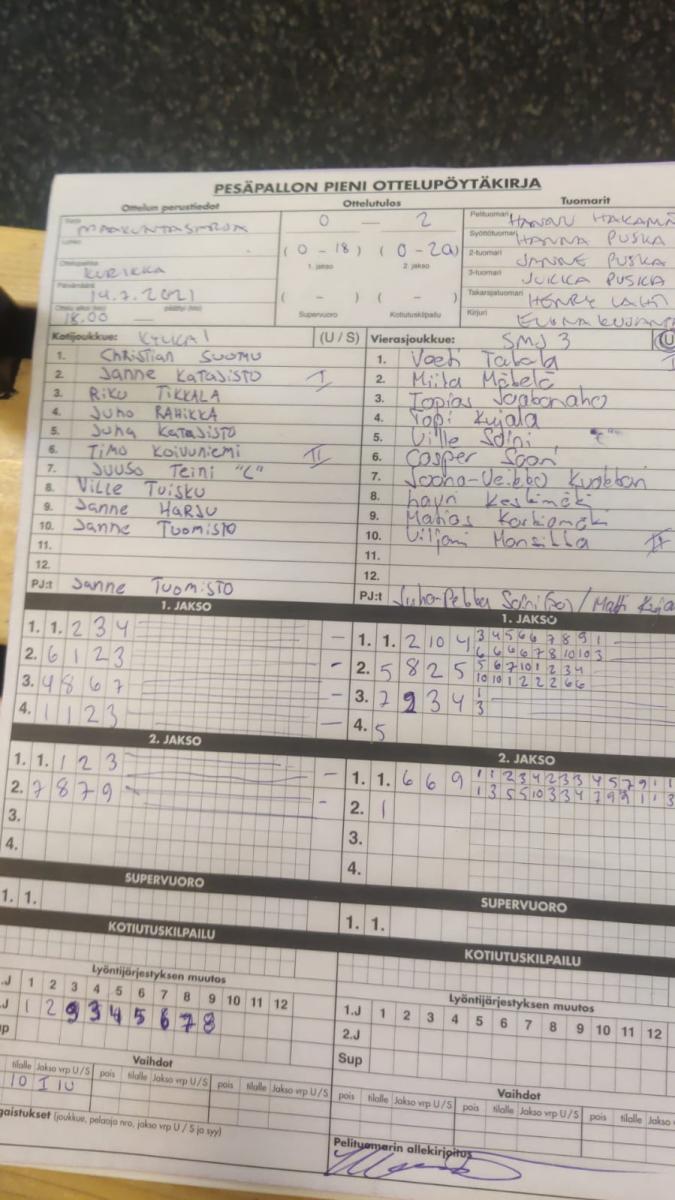 PESÄPALLON PIENI OTTELUPÖYTÄKIRJA
Ottelun perustiedot Ottelutulos Tuomarit
Sarja MAAKUNTASARJA
Lohko
Ottelupaikka KURIKKA
Päivämäärä 14.7.2021
Ottelu alkoi (klo) 18.00 päättyi (klo)
0 — 2
(0 - 18) (0 - 20)
1. jakso 2. jakso
( - ) ( - )
Supervuoro Kotiutuskilpailu
Pelituomari HANNU
Syöttötuomari HANNA PUSKA
2-tuomari JANNE PUSKA
3-tuomari JUKKA PUSKA
Takarajatuomari HENRY LAHTI
Kirjuri
Kotijoukkue: (U / S)
1. CHRISTIAN SUOMU
2. JANNE KATAJISTO I
3. RIKU TIKKALA
4. JUHO RAHIKKA
5. JUHA KATAJISTO
6. TIMO KOIVUNIEMI II
7. JUUSO TEINI "C"
8. VILLE TUISKU
9. JANNE HARJU
10. JANNE TUOMISTO
11.
12.
PJ:t JANNE TUOMISTO
Vierasjoukkue: SMJ 3 (U
1. Veeti
2. Miika Mäkelä
3. Topias
4. Topi Kujala
5. Ville Soini "C"
6. Casper
7.
8. Lauri Keskimäki
9. Matias
10. Viljami II
11.
12.
PJ:t Juha-Pekka Soini / Matti
1. JAKSO
1. 1. 2 3 4 —
2. 6 1 2 3 -
3. 4 8 6 7 —
4. 1 1 2 3 —
2. JAKSO
1. 1. 1 2 3 —
2. 7 8 7 9 -
3.
4.
SUPERVUORO
1. 1.
KOTIUTUSKILPAILU
Lyöntijärjestyksen muutos
.J 1 2 3 4 5 6 7 8 9 10 11 12
.J 1 2 9 3 4 5 6 7 8
Vaihdot
tilalle Jakso vrp U/S pois tilalle Jakso vrp U/S pois tilalle Jakso vrp U/S
10 I IU
(joukkue, pelaaja nro, jakso vrp U / S ja syy)
1. JAKSO
1. 1. 2 10 4 3 4 5 6 6 7 8 9 1
6 6 6 6 7 8 10 10 3
2. 5 8 2 5 5 6 7 10 1 2 3 4
10 10 1 2 2 2 6 6
3. 7 2 3 4 1
3
4. 5
2. JAKSO
1. 1. 6 6 9 1 1 2 3 4 2 3 3 4 5 7 9 1 1
1 3 5 5 10 3 3 4 7 9 9 1 1 3
2. 1
3.
4.
SUPERVUORO
1. 1.
KOTIUTUSKILPAILU
Lyöntijärjestyksen muutos
1.J 1 2 3 4 5 6 7 8 9 10 11 12
2.J
Sup
Vaihdot
pois tilalle Jakso vrp U/S pois tilalle Jakso vrp U/S pois tilalle Jakso v
Pelituomarin allekirjoitus